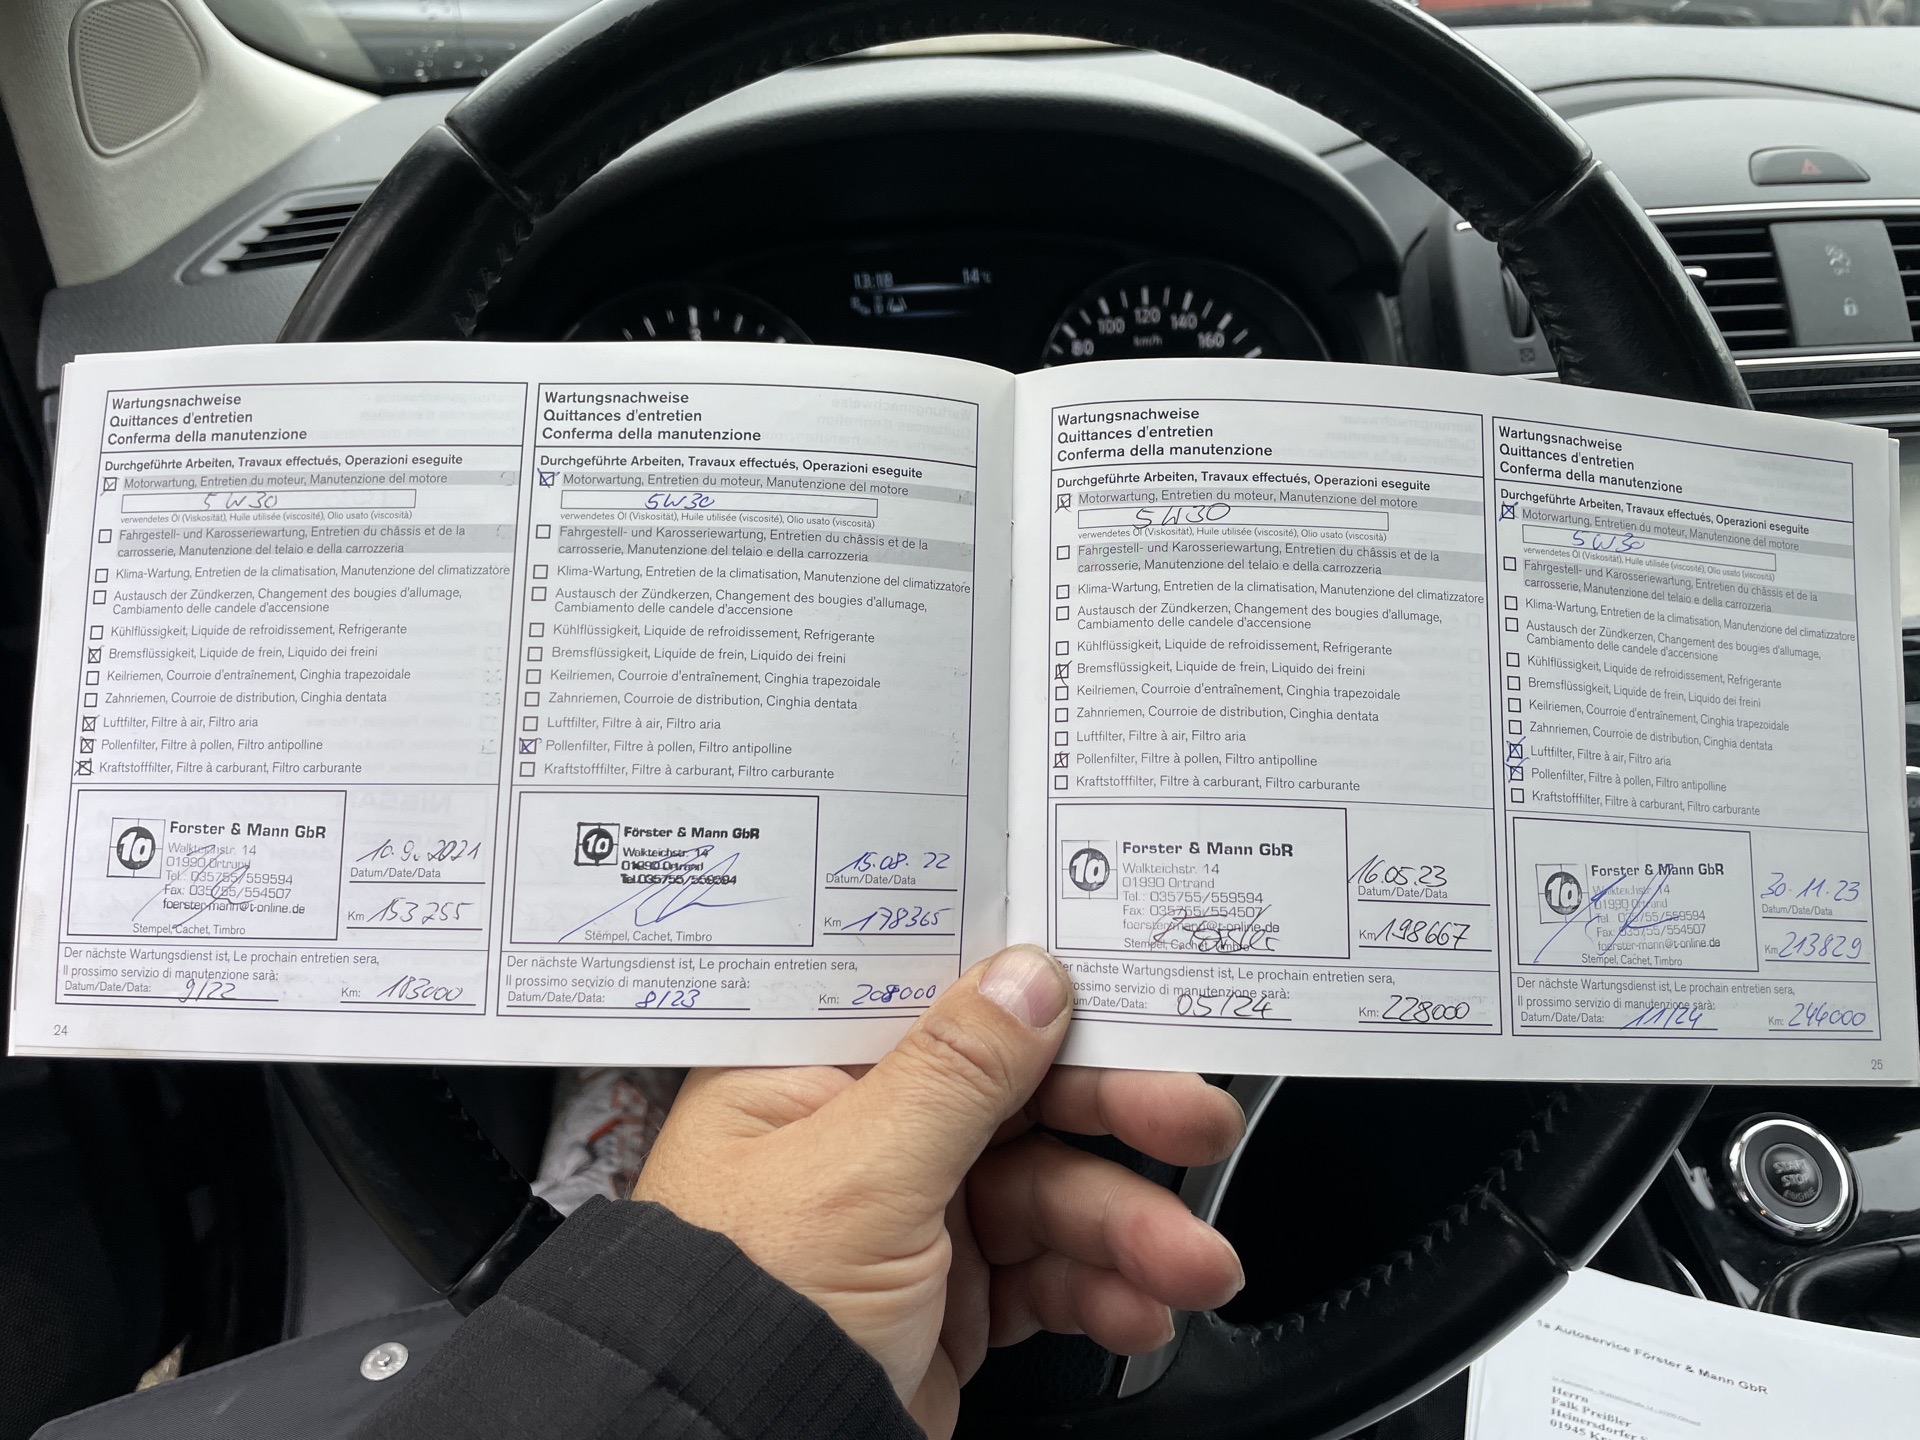 13:18 14°C
80 100 120 140 160
km/h
Wartungsnachweise
Quittances d'entretien
Conferma della manutenzione
Durchgeführte Arbeiten, Travaux effectués, Operazioni eseguite
Motorwartung, Entretien du moteur, Manutenzione del motore
5W30
verwendetes Öl (Viskosität), Huile utilisée (viscosité), Olio usato (viscosità)
Fahrgestell- und Karosseriewartung, Entretien du châssis et de la
carrosserie, Manutenzione del telaio e della carrozzeria
Klima-Wartung, Entretien de la climatisation, Manutenzione del climatizzatore
Austausch der Zündkerzen, Changement des bougies d'allumage,
Cambiamento delle candele d'accensione
Kühlflüssigkeit, Liquide de refroidissement, Refrigerante
Bremsflüssigkeit, Liquide de frein, Liquido dei freini
Keilriemen, Courroie d'entraînement, Cinghia trapezoidale
Zahnriemen, Courroie de distribution, Cinghia dentata
Luftfilter, Filtre à air, Filtro aria
Pollenfilter, Filtre à pollen, Filtro antipolline
Kraftstofffilter, Filtre à carburant, Filtro carburante
1a
Förster & Mann GbR
Walkteichstr. 14
01990 Ortrand
Tel.: 035755/559594
Fax: 035755/554507
foerster-mann@t-online.de
Stempel, Cachet, Timbro
10.9.2021
Datum/Date/Data
Km 153255
Der nächste Wartungsdienst ist, Le prochain entretien sera,
Il prossimo servizio di manutenzione sarà:
Datum/Date/Data: 9/22 Km: 183000
24
Wartungsnachweise
Quittances d'entretien
Conferma della manutenzione
Durchgeführte Arbeiten, Travaux effectués, Operazioni eseguite
Motorwartung, Entretien du moteur, Manutenzione del motore
5W30
verwendetes Öl (Viskosität), Huile utilisée (viscosité), Olio usato (viscosità)
Fahrgestell- und Karosseriewartung, Entretien du châssis et de la
carrosserie, Manutenzione del telaio e della carrozzeria
Klima-Wartung, Entretien de la climatisation, Manutenzione del climatizzatore
Austausch der Zündkerzen, Changement des bougies d'allumage,
Cambiamento delle candele d'accensione
Kühlflüssigkeit, Liquide de refroidissement, Refrigerante
Bremsflüssigkeit, Liquide de frein, Liquido dei freini
Keilriemen, Courroie d'entraînement, Cinghia trapezoidale
Zahnriemen, Courroie de distribution, Cinghia dentata
Luftfilter, Filtre à air, Filtro aria
Pollenfilter, Filtre à pollen, Filtro antipolline
Kraftstofffilter, Filtre à carburant, Filtro carburante
1a
Förster & Mann GbR
Walkteichstr. 14
01990 Ortrand
Tel.035755/559594
Stempel, Cachet, Timbro
15.08.22
Datum/Date/Data
Km 178365
Der nächste Wartungsdienst ist, Le prochain entretien sera,
Il prossimo servizio di manutenzione sarà:
Datum/Date/Data: 8/23 Km: 208000
Wartungsnachweise
Quittances d'entretien
Conferma della manutenzione
Durchgeführte Arbeiten, Travaux effectués, Operazioni eseguite
Motorwartung, Entretien du moteur, Manutenzione del motore
5W30
verwendetes Öl (Viskosität), Huile utilisée (viscosité), Olio usato (viscosità)
Fahrgestell- und Karosseriewartung, Entretien du châssis et de la
carrosserie, Manutenzione del telaio e della carrozzeria
Klima-Wartung, Entretien de la climatisation, Manutenzione del climatizzatore
Austausch der Zündkerzen, Changement des bougies d'allumage,
Cambiamento delle candele d'accensione
Kühlflüssigkeit, Liquide de refroidissement, Refrigerante
Bremsflüssigkeit, Liquide de frein, Liquido dei freini
Keilriemen, Courroie d'entraînement, Cinghia trapezoidale
Zahnriemen, Courroie de distribution, Cinghia dentata
Luftfilter, Filtre à air, Filtro aria
Pollenfilter, Filtre à pollen, Filtro antipolline
Kraftstofffilter, Filtre à carburant, Filtro carburante
1a
Förster & Mann GbR
Walkteichstr. 14
01990 Ortrand
Tel.: 035755/559594
Fax: 035755/554507
foerster-mann@t-online.de
Stempel, Cachet, Timbro
16.05.23
Datum/Date/Data
Km 198667
er nächste Wartungsdienst ist, Le prochain entretien sera,
ossimo servizio di manutenzione sarà:
um/Date/Data: 05/24 Km: 228000
Wartungsnachweise
Quittances d'entretien
Conferma della manutenzione
Durchgeführte Arbeiten, Travaux effectués, Operazioni eseguite
Motorwartung, Entretien du moteur, Manutenzione del motore
5W30
verwendetes Öl (Viskosität), Huile utilisée (viscosité), Olio usato (viscosità)
Fahrgestell- und Karosseriewartung, Entretien du châssis et de la
carrosserie, Manutenzione del telaio e della carrozzeria
Klima-Wartung, Entretien de la climatisation, Manutenzione del climatizzatore
Austausch der Zündkerzen, Changement des bougies d'allumage,
Cambiamento delle candele d'accensione
Kühlflüssigkeit, Liquide de refroidissement, Refrigerante
Bremsflüssigkeit, Liquide de frein, Liquido dei freini
Keilriemen, Courroie d'entraînement, Cinghia trapezoidale
Zahnriemen, Courroie de distribution, Cinghia dentata
Luftfilter, Filtre à air, Filtro aria
Pollenfilter, Filtre à pollen, Filtro antipolline
Kraftstofffilter, Filtre à carburant, Filtro carburante
1a
Förster & Mann GbR
Walkteichstr. 14
01990 Ortrand
Tel.: 035755/559594
Fax: 035755/554507
foerster-mann@t-online.de
Stempel, Cachet, Timbro
30.11.23
Datum/Date/Data
Km 213829
Der nächste Wartungsdienst ist, Le prochain entretien sera,
Il prossimo servizio di manutenzione sarà:
Datum/Date/Data: 11/24 Km: 244000
25
START
STOP
ENGINE
1a Autoservice Förster & Mann GbR
Herrn
Falk Preißler
Heinersdorfer
01945